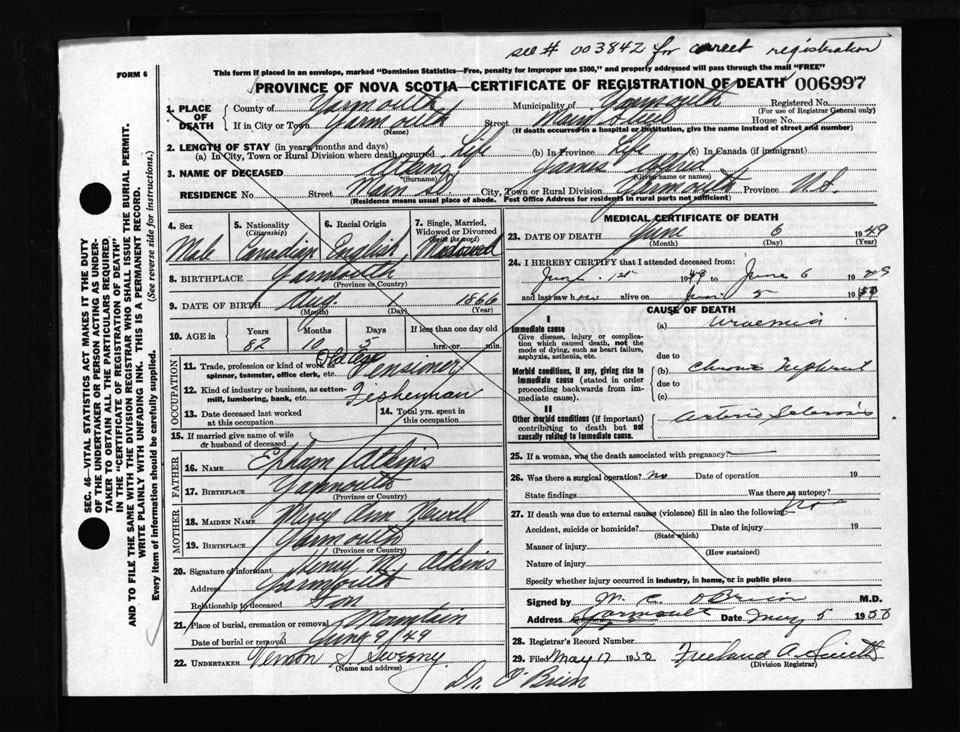 see # 003842 for correct registration
FORM 6
This form if placed in an envelope, marked "Dominion Statistics—Free, penalty for improper use $300," and properly addressed will pass through the mail "FREE"
PROVINCE OF NOVA SCOTIA—CERTIFICATE OF REGISTRATION OF DEATH 006997
SEC. 46—VITAL STATISTICS ACT MAKES IT THE DUTY
OF THE UNDERTAKER OR PERSON ACTING AS UNDER-
TAKER TO OBTAIN ALL THE PARTICULARS REQUIRED
IN THE "CERTIFICATE OF REGISTRATION OF DEATH"
AND TO FILE THE SAME WITH THE DIVISION REGISTRAR WHO SHALL ISSUE THE BURIAL PERMIT.
WRITE PLAINLY WITH UNFADING INK. THIS IS A PERMANENT RECORD.
Every item of information should be carefully supplied. (See reverse side for instructions.)
1. PLACE OF DEATH County of Yarmouth Municipality of Yarmouth Registered No.
(For use of Registrar General only)
If in City or Town Yarmouth Street Main Street House No.
(Name) (If death occurred in a hospital or institution, give the name instead of street and number)
2. LENGTH OF STAY (in years, months and days)
(a) In City, Town or Rural Division where death occurred Life (b) In Province Life (c) In Canada (if immigrant)
3. NAME OF DECEASED Atkins James
(Surname) (Given name or names)
RESIDENCE No. Street Main St City, Town or Rural Division Yarmouth Province N.S.
(Residence means usual place of abode. Post Office Address for residents in rural parts not sufficient)
4. Sex 5. Nationality (Citizenship) 6. Racial Origin 7. Single, Married, Widowed or Divorced (write the word)
Male Canadian English Widowed
8. BIRTHPLACE Yarmouth
(Province or Country)
9. DATE OF BIRTH Aug 1 1866
(Month) (Day) (Year)
10. AGE in Years Months Days If less than one day old
82 10 5 hrs. or min.
OCCUPATION
11. Trade, profession or kind of work as spinner, teamster, office clerk, etc. Old Age Pensioner
12. Kind of industry or business, as cotton-mill, lumbering, bank, etc. Fisherman
13. Date deceased last worked at this occupation 14. Total yrs. spent in this occupation
15. If married give name of wife or husband of deceased
FATHER
16. NAME Atkins
17. BIRTHPLACE Yarmouth
(Province or Country)
MOTHER
18. MAIDEN NAME Ann
19. BIRTHPLACE Yarmouth
(Province or Country)
20. Signature of informant Henry Atkins
Address Yarmouth
Relationship to deceased Son
21. Place of burial, cremation or removal Mountain
Date of burial or removal June 9/49
22. UNDERTAKER Vernon S Sweeny
(Name and address)
Dr. O'Brien
MEDICAL CERTIFICATE OF DEATH
23. DATE OF DEATH June 6 1949
(Month) (Day) (Year)
24. I HEREBY CERTIFY that I attended deceased from:
1949 to June 6 1949
and last saw him alive on June 5 19
CAUSE OF DEATH
I
Immediate cause (a) Uraemia
Give disease, injury or complication which caused death, not the mode of dying, such as heart failure, asphyxia, asthenia, etc.
due to
Morbid conditions, if any, giving rise to immediate cause (stated in order proceeding backwards from immediate cause). (b) Chronic
due to
(c)
II
Other morbid conditions (if important) contributing to death but not causally related to immediate cause. Arterio Sclerosis
25. If a woman, was the death associated with pregnancy?
26. Was there a surgical operation? no Date of operation 19
State findings Was there an autopsy? no
27. If death was due to external causes (violence) fill in also the following:
Accident, suicide or homicide? Date of injury 19
(State which)
Manner of injury
(How sustained)
Nature of injury
Specify whether injury occurred in industry, in home, or in public place
Signed by M. C. O'Brien M.D.
Address Yarmouth Date May 5 1950
28. Registrar's Record Number
29. Filed May 17 1950 Freeland A. Smith
(Division Registrar)